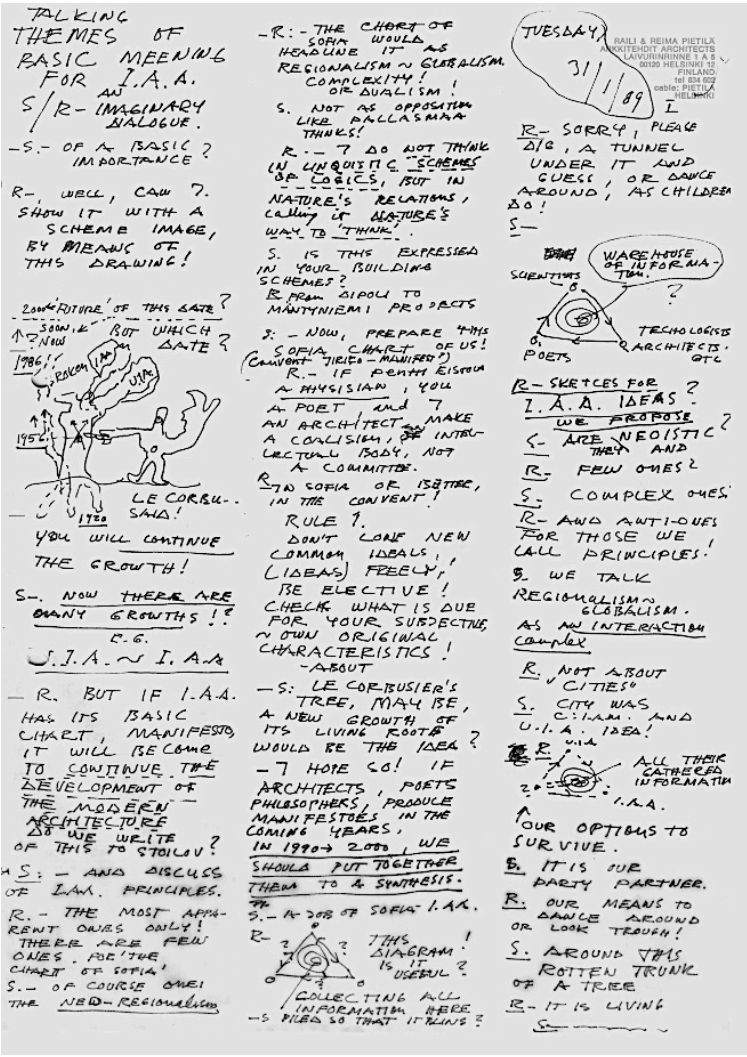 TALKING
THEMES OF
BASIC MEENING
FOR I.A.A.
AN
S/R- IMAGINARY
DIALOGUE.
-S.- OF A BASIC
IMPORTANCE?
R-, WELL, CAN I.
SHOW IT WITH A
SCHEME IMAGE,
BY MEANS OF
THIS DRAWING!
'FUTURE' OF THIS DATE?
SOON,
BUT WHICH
DATE?
? NOW
1986!
BROKEN
I.A.A.
U.I.A.
1956
1920
LE CORBU-.
SAID!
YOU WILL CONTINUE
THE GROWTH!
S-. NOW THERE ARE
MANY GROWTHS!?
E.G.
U.I.A. ~ I.A.A
- R. BUT IF I.A.A.
HAS ITS BASIC
CHART, MANIFESTO,
IT WILL BECOME
TO CONTINUE THE
DEVELOPMENT OF
THE MODERN
ARCHITECTURE
DO WE WRITE
OF THIS TO STOILOV?
S: - AND DISCUSS
OF I.A.A. PRINCIPLES.
R. - THE MOST APPA-
RENT ONES ONLY!
THERE ARE FEW
ONES. FOR 'THE
CHART OF SOFIA'
S.- OF COURSE ONE!
THE NEO-REGIONALISM
-R:- THE CHART OF
SOFIA WOULD
HEADLINE IT AS
REGIONALISM ~ GLOBALISM.
COMPLEXITY!
OR DUALISM!
S. NOT AS OPPOSITION
LIKE PALLASMAA
THINKS!
R.- I DO NOT THINK
IN LINQUISTIC SCHEMES
OF LOGICS, BUT IN
NATURE'S RELATIONS,
calling it NATURE'S
WAY TO 'THINK'.
S. IS THIS EXPRESSED
IN YOUR BUILDING
SCHEMES?
R FROM DIPOLI TO
MÄNTYNIEMI PROJECTS
S: - NOW, PREPARE THIS
SOFIA CHART OF US!
(Convent MANIFEST")
R.- IF PENTTI
A PHYSISIAN, YOU
A POET, and I
AN ARCHITECT, MAKE
A COALISION, OF INTEL-
LECTUAL BODY, NOT
A COMMITTEE.
R IN SOFIA OR BETTER,
IN THE CONVENT!
RULE 1.
DON'T LONE NEW
COMMON IDEALS,
(IDEAS) FREELY,
BE ELECTIVE!
CHECK WHAT IS DUE
FOR YOUR SUBJECTIVE,
~ OWN ORIGINAL
CHARACTERISTICS!
-ABOUT
-S: LE CORBUSIER'S
TREE, MAY BE,
A NEW GROWTH OF
ITS LIVING ROOTS
WOULD BE THE IDEA?
- I HOPE SO! IF
ARCHITECTS, POETS
PHILOSOPHERS, PRODUCE
MANIFESTOES IN THE
COMING YEARS,
IN 1990→2000, WE
SHOULD PUT TOGETHER
THEM TO A SYNTHESIS.
S.- A JOB OF SOFIA-I.A.A.
R-
THIS
DIAGRAM!
IS IT
USEFUL?
COLLECTING ALL
INFORMATION HERE
-S PILED SO THAT IT BLINS?
TUESDAY
31/1/89
RAILI & REIMA PIETILÄ
ARKKITEHDIT ARCHITECTS
LAIVURINRINNE 1 A 5
00120 HELSINKI 12
FINLAND
tel 634 602
cable: PIETILÄ
HELSINKI
I
R- SORRY, PLEASE
DIG, A TUNNEL
UNDER IT AND
GUESS, OR DANCE
AROUND, AS CHILDREN
DO!
S-
WAREHOUSE
OF INFORMA-
TION.
?
SCIENTISTS
POETS
TECHOLOGISTS
ARCHITECTS.
ETC
R- SKETCES FOR
I.A.A. IDEAS?
WE PROPOSE
S- ARE NEOISTIC?
THEY AND
R- FEW ONES?
S. COMPLEX ONES
R- AND ANTI-ONES
FOR THOSE WE
CALL PRINCIPLES!
S. WE TALK
REGIONALISM~
GLOBALISM.
AS AN INTERACTION
Complex
R. NOT ABOUT
"CITIES"
S. CITY WAS
C.I.A.M. AND
U.I.A. IDEA!
R.
U.I.A
I.A.A.
ALL THEIR
GATHERED
INFORMATION
OUR OPTIONS TO
SURVIVE.
S. IT IS OUR
PARTY PARTNER.
R. OUR MEANS TO
DANCE AROUND
OR LOOK TROUGH!
S. AROUND THIS
ROTTEN TRUNK
OF A TREE
R- IT IS LIVING
S-